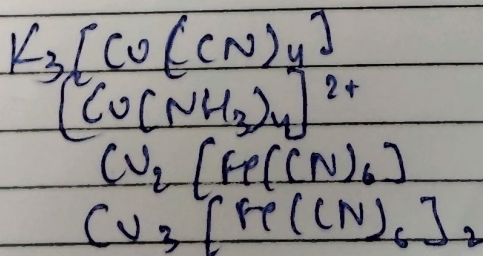 K3[Cu(CN)4]
[Cu(NH3)4]2+
Cu2[Fe(CN)6]
Cu3[Fe(CN)6]2